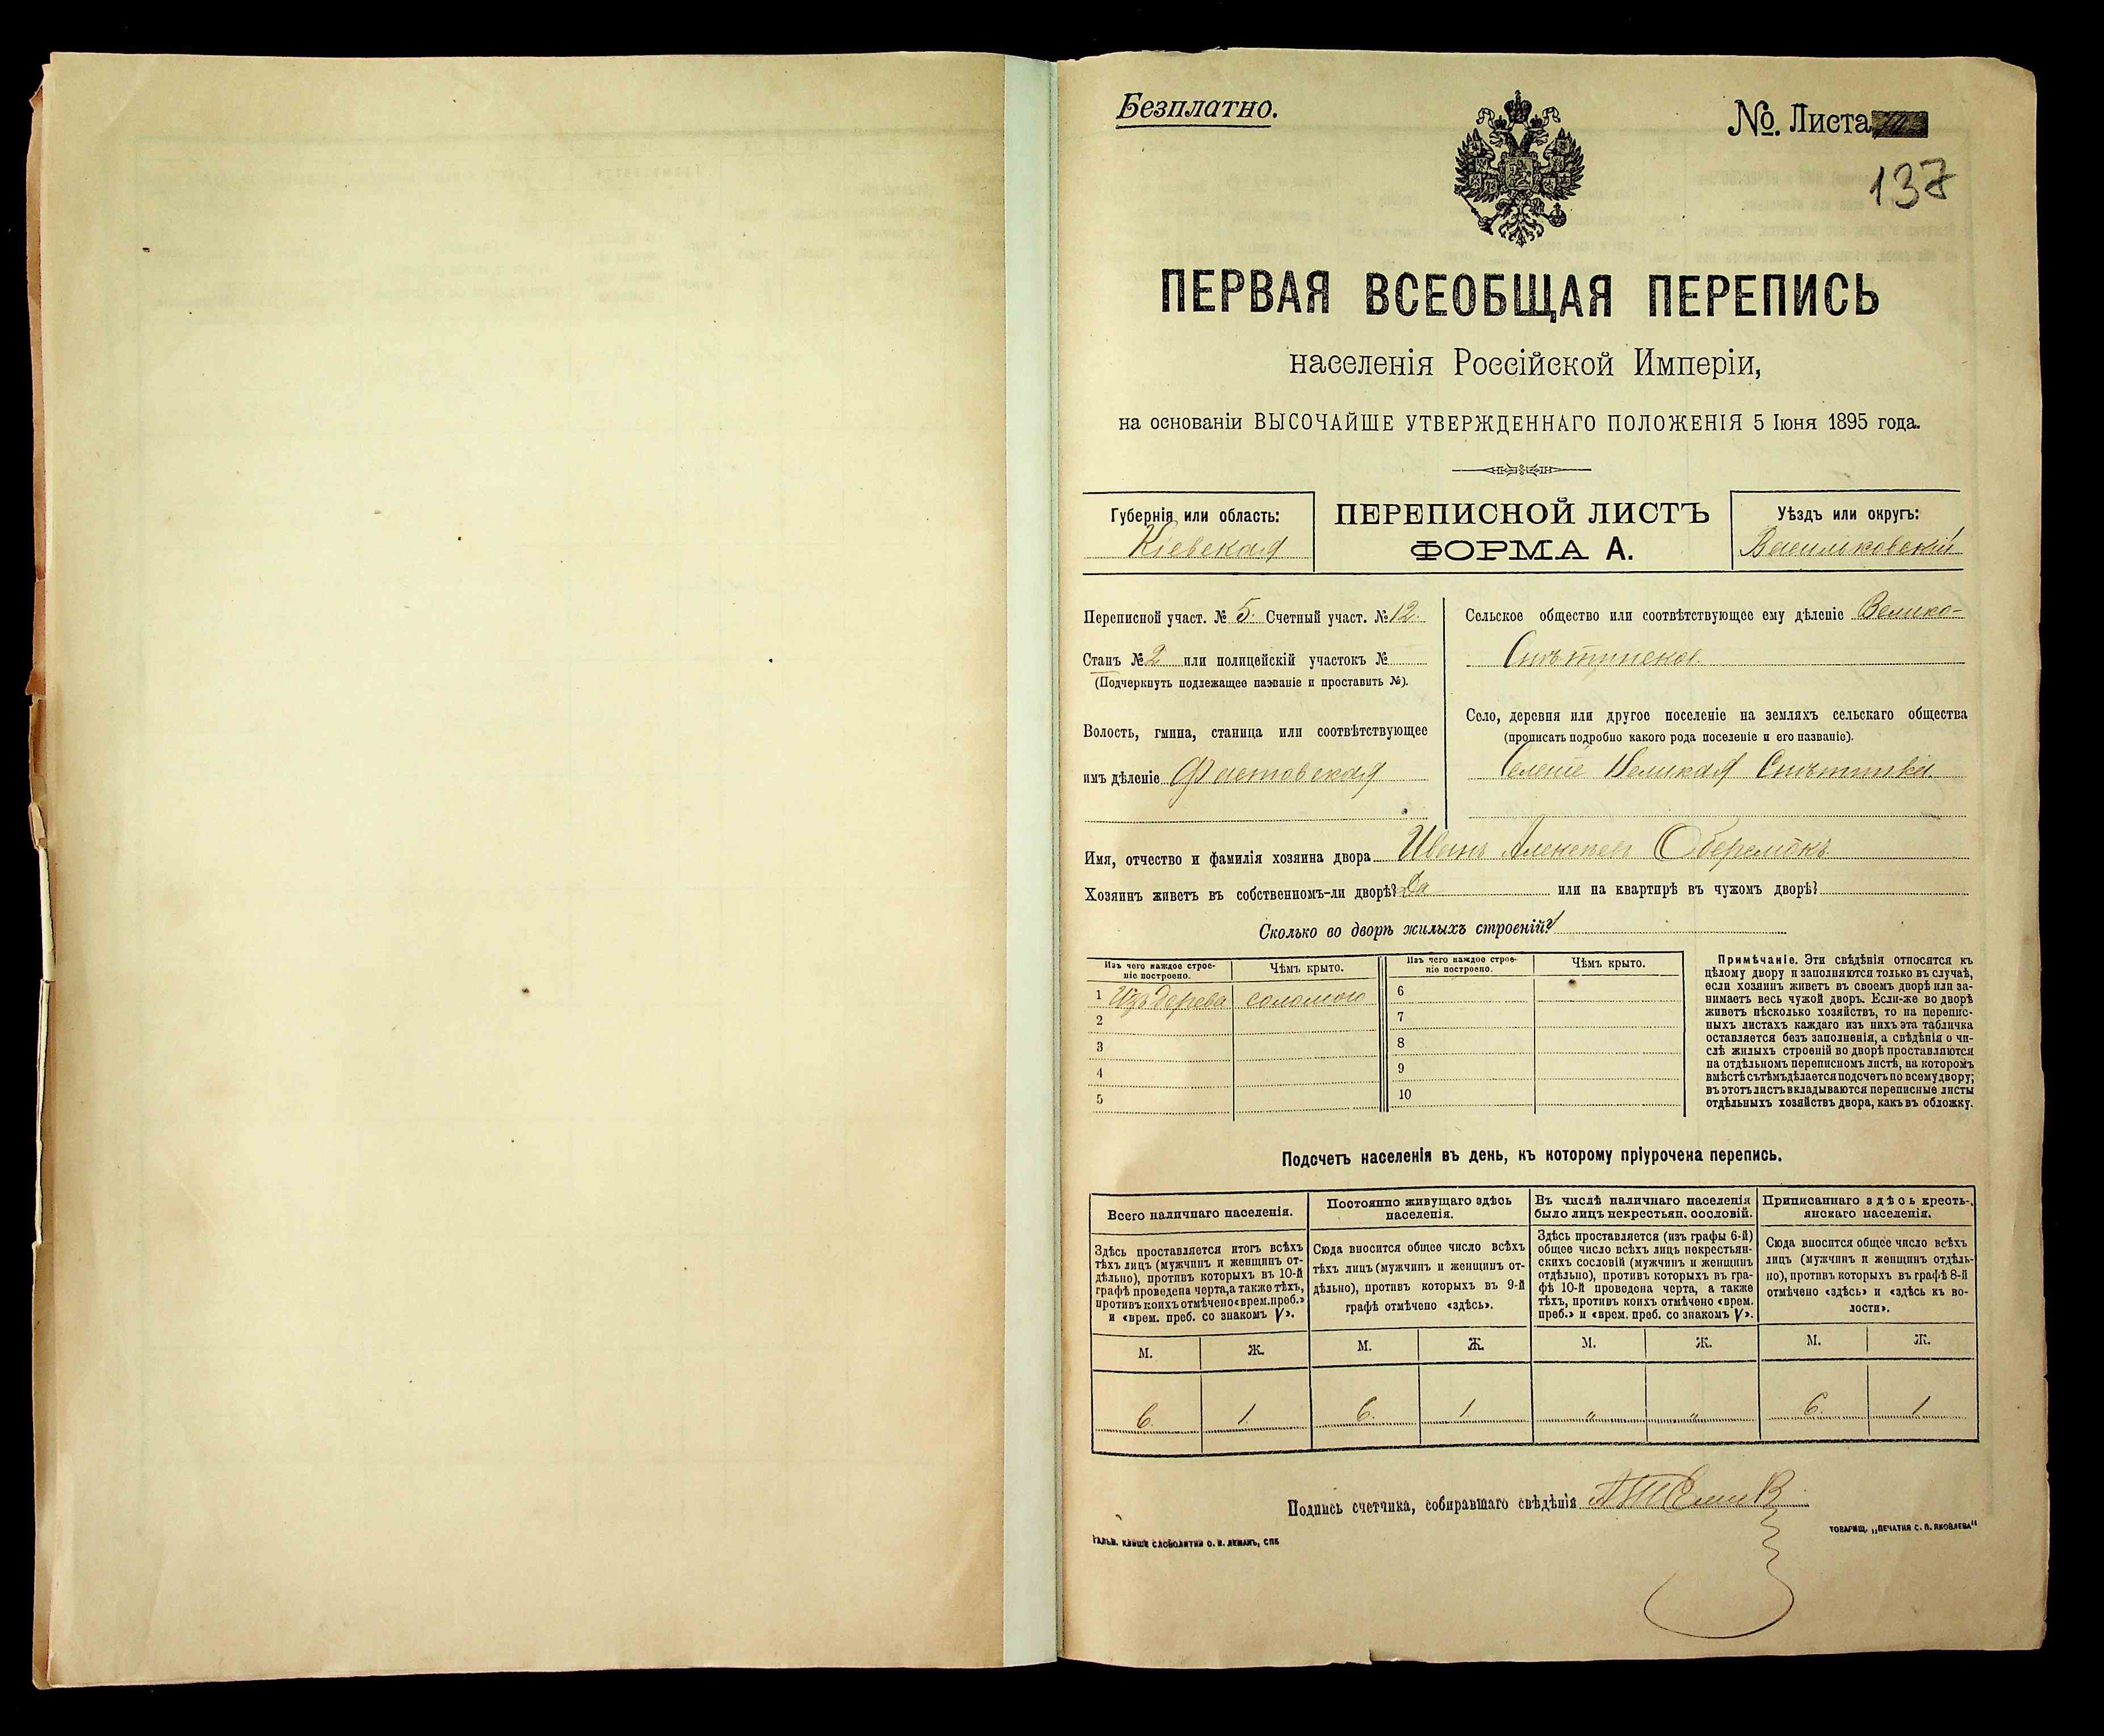 Безплатно.
№. Листа
137
ПЕРВАЯ ВСЕОБЩАЯ ПЕРЕПИСЬ
населенія Россійской Имперіи,
на основаніи ВЫСОЧАЙШЕ УТВЕРЖДЕННАГО ПОЛОЖЕНІЯ 5 Іюня 1895 года.
Губернія или область:
Кіевская
ПЕРЕПИСНОЙ ЛИСТЪ
ФОРМА А.
Уѣздъ или округъ:
Васильковскій
Переписной участ. № 5. Счетный участ. № 12.
Станъ № 2 или полицейскій участокъ №
(Подчеркнуть подлежащее названіе и проставить №).
Волость, гмина, станица или соотвѣтствующее
имъ дѣленіе Фастовская
Сельское общество или соотвѣтствующее ему дѣленіе Велико-
Снѣтинское.
Село, деревня или другое поселеніе на земляхъ сельскаго общества
(прописать подробно какого рода поселеніе и его названіе).
Селеніе Великая Снѣтинка
Имя, отчество и фамилія хозяина двора Иванъ Алексѣевъ Оберемокъ
Хозяинъ живетъ въ собственномъ-ли дворѣ? Да или на квартирѣ въ чужомъ дворѣ?
Сколько во дворѣ жилыхъ строеній? 1
Изъ чего каждое строе-
ніе построено.
Чѣмъ крыто.
Изъ чего каждое строе-
ніе построено.
Чѣмъ крыто.
1 Изъ дерева соломою 6
2 7
3 8
4 9
5 10
Примѣчаніе. Эти свѣдѣнія относятся къ
цѣлому двору и заполняются только въ случаѣ,
если хозяинъ живетъ въ своемъ дворѣ или за-
нимаетъ весь чужой дворъ. Если-же во дворѣ
живетъ нѣсколько хозяйствъ, то на перепис-
ныхъ листахъ каждаго изъ нихъ эта табличка
оставляется безъ заполненія, а свѣдѣнія о чи-
слѣ жилыхъ строеній во дворѣ проставляются
на отдѣльномъ переписномъ листѣ, на которомъ
вмѣстѣ съ тѣмъ дѣлается подсчетъ по всему двору;
въ этотъ листъ вкладываются переписные листы
отдѣльныхъ хозяйствъ двора, какъ въ обложку.
Подсчетъ населенія въ день, къ которому пріурочена перепись.
Всего наличнаго населенія.
Здѣсь проставляется итогъ всѣхъ
тѣхъ лицъ (мужчинъ и женщинъ от-
дѣльно), противъ которыхъ въ 10-й
графѣ проведена черта, а также тѣхъ,
противъ коихъ отмѣчено «врем. преб.»
и «врем. преб. со знакомъ V».
Постоянно живущаго здѣсь
населенія.
Сюда вносится общее число всѣхъ
тѣхъ лицъ (мужчинъ и женщинъ от-
дѣльно), противъ которыхъ въ 9-й
графѣ отмѣчено «здѣсь».
Въ числѣ наличнаго населенія
было лицъ некрестьян. сословій.
Здѣсь проставляется (изъ графы 6-й)
общее число всѣхъ лицъ некрестьян-
скихъ сословій (мужчинъ и женщинъ
отдѣльно), противъ которыхъ въ гра-
фѣ 10-й проведена черта, а также
тѣхъ, противъ коихъ отмѣчено «врем.
преб.» и «врем. преб. со знакомъ V».
Приписаннаго здѣсь кресть-
янскаго населенія.
Сюда вносится общее число всѣхъ
лицъ (мужчинъ и женщинъ отдѣль-
но), противъ которыхъ въ графѣ 8-й
отмѣчено «здѣсь» и «здѣсь къ во-
лости».
М. Ж. М. Ж. М. Ж. М. Ж.
6. 1. 6. 1. " " 6. 1
Подпись счетчика, собиравшаго свѣдѣнія
ГАЛЬВ. КЛИШЕ СЛОВОЛИТНИ О. И. ЛЕМАНЪ, СПБ
ТОВАРИЩ. „ПЕЧАТНЯ С. П. ЯКОВЛЕВА"